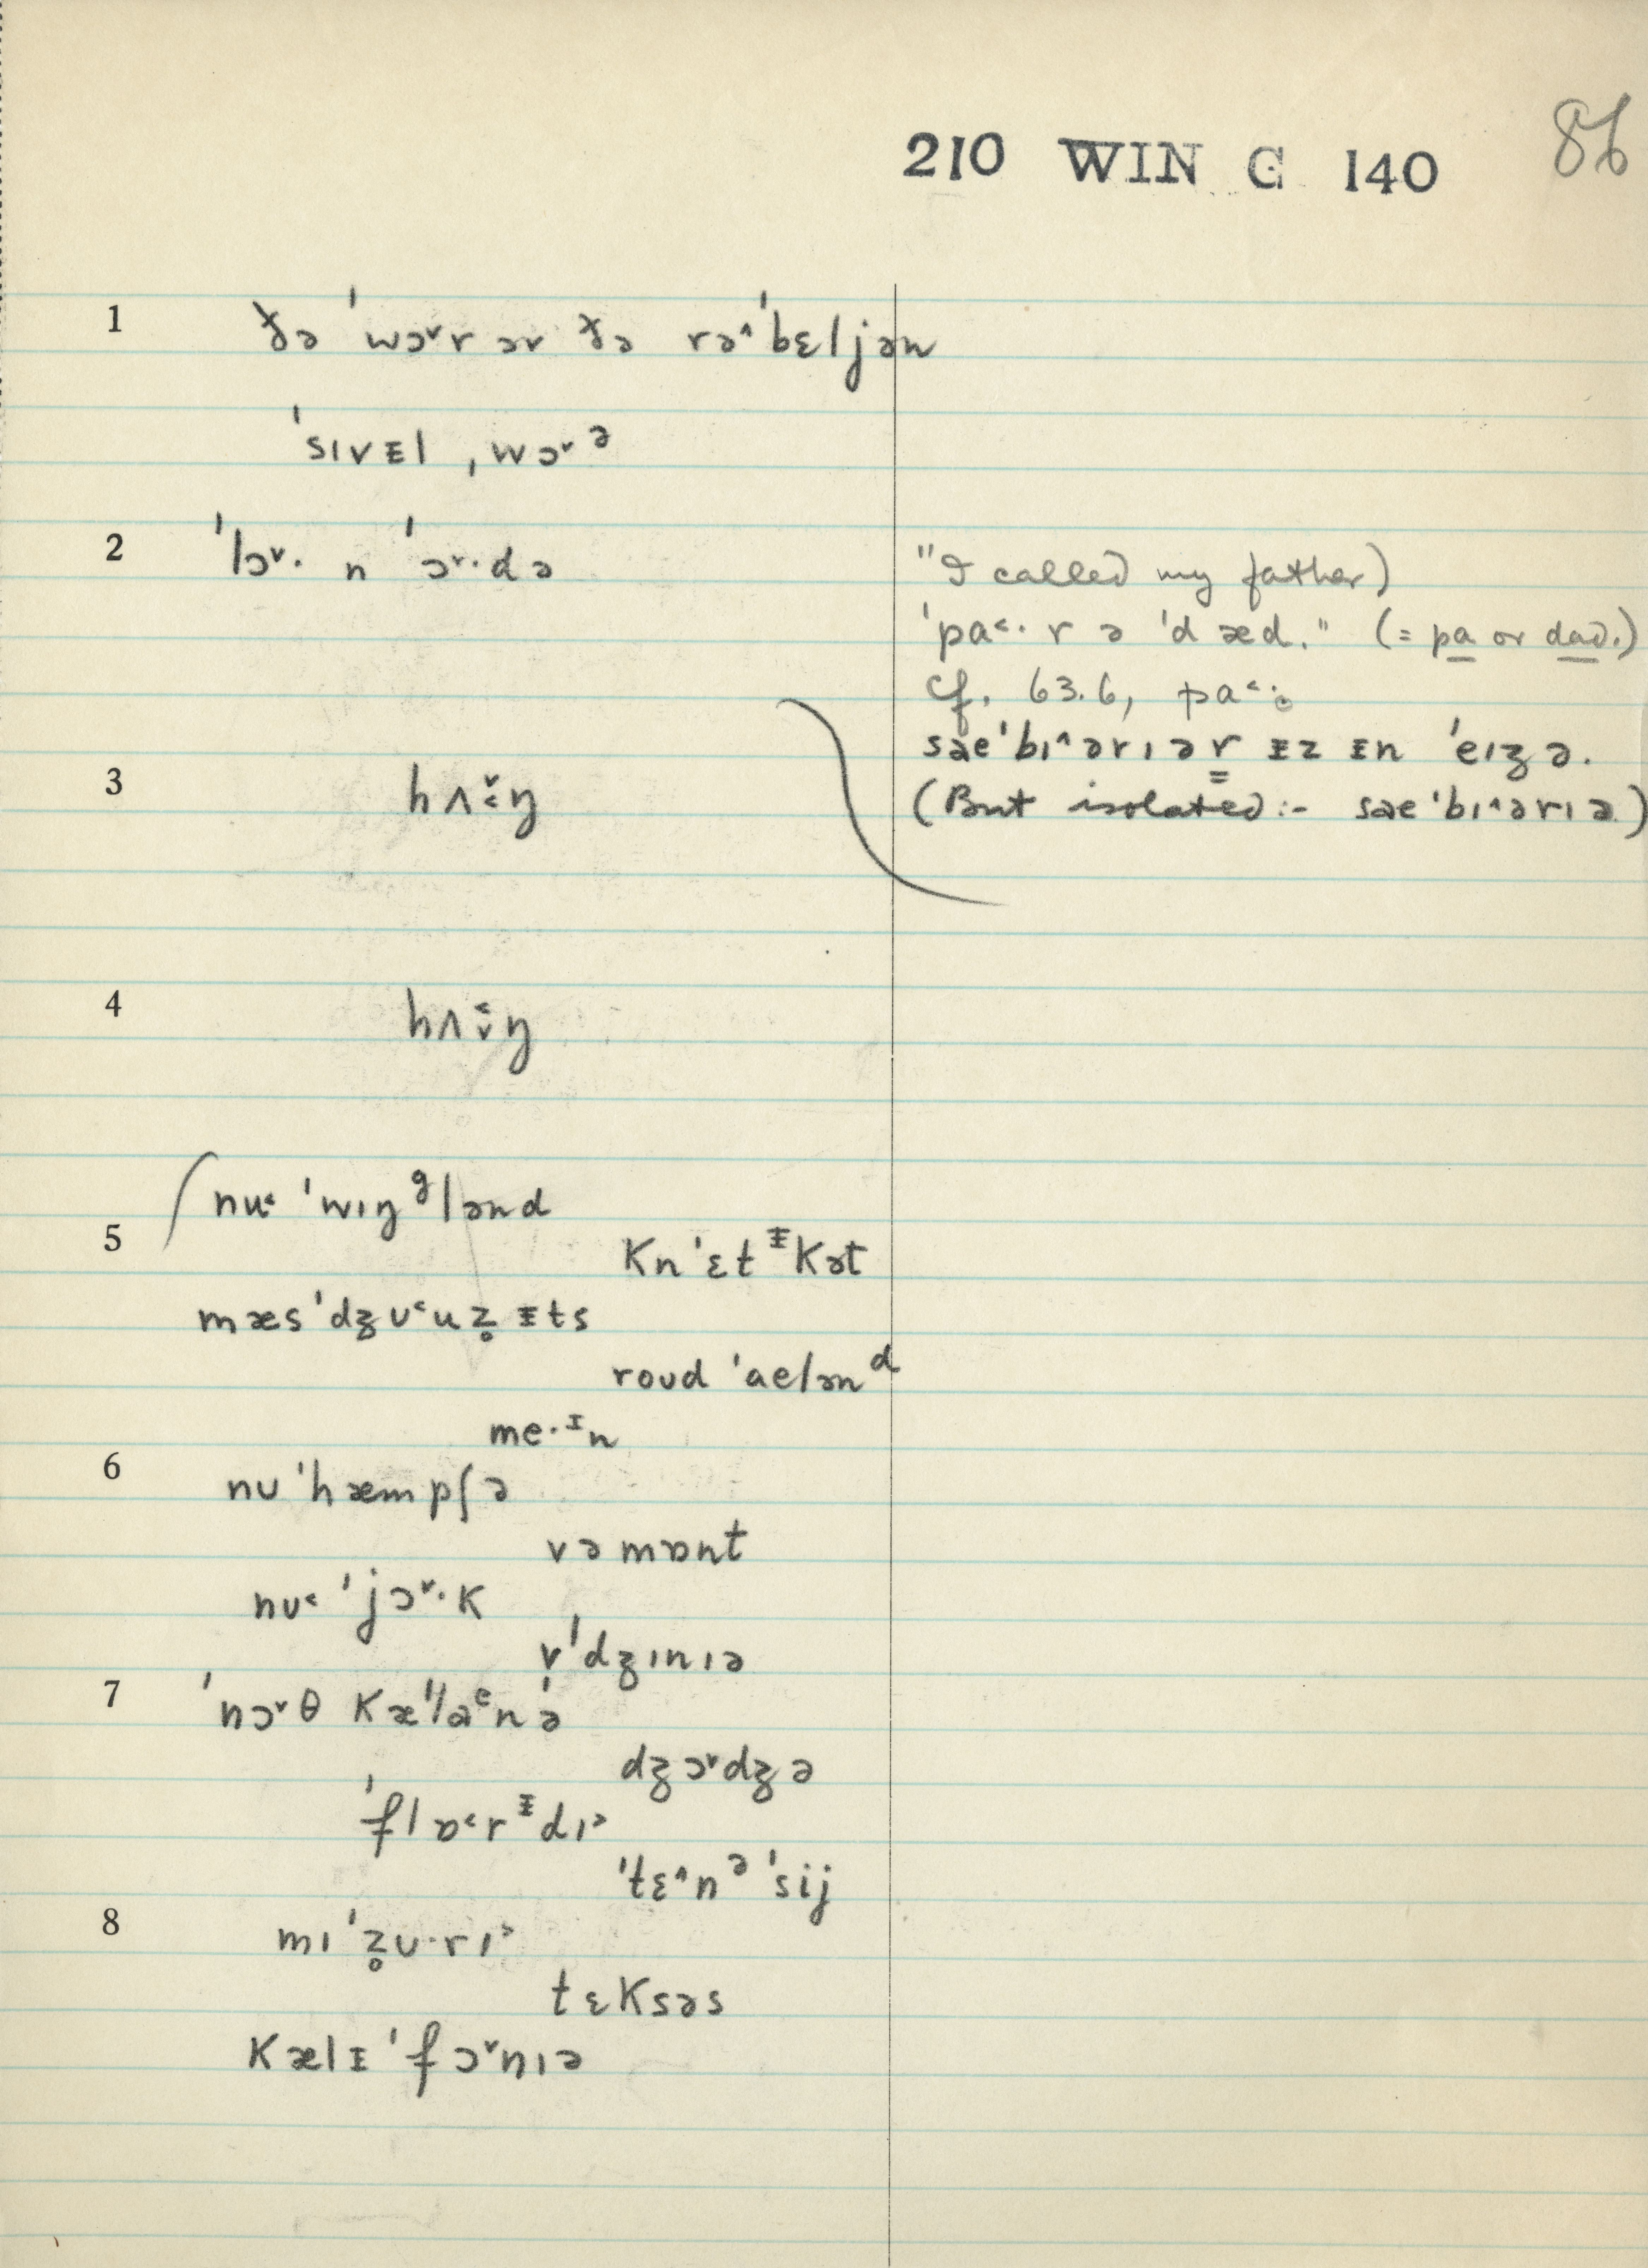 210 WIN C 140 86
1 ðə ˈwɔ˅r əv ðə rə˄ˈbɛljən
ˈsɪvᵻl ˌwɔ˅ᵊ
2 ˈlɔ˅· n ˈɔ˅·də
"I called my father)
ˈpa˂· r ə ˈdæd." (= pa or dad.)
Cf. 63.6, pa˂·
sæeˈbɪ˄ərɪər ᵻz ᵻn ˈeɪʒə.
(But isolated:- sæeˈbɪ˄ərɪə)
3 hʌ˅˂·ŋ
4 hʌ˂˅·ŋ
nʉ˂ ˈwɪŋᵍlənd
5 knˈɛtᵻkət
mæsˈdʒʊ˂uz̥ᵻts
roʊd ˈaelənᵈ
me·ᶦn
6 nʊ ˈhæmpʃə
vəmɒnt
nʊ˂ ˈjɔ˅·k
vˈdʒɪnɪə
7 ˈnɔ˅θ kæˈlaᵉnə
dʒɔ˅dʒə
ˈflɒ˂rᵻdɪᵊ
ˈtɛ˄nᵊˈsij
8 mɪˈz̥ʊ·rɪ˃
tɛksəs
kælᵻˈfɔ˅nɪə